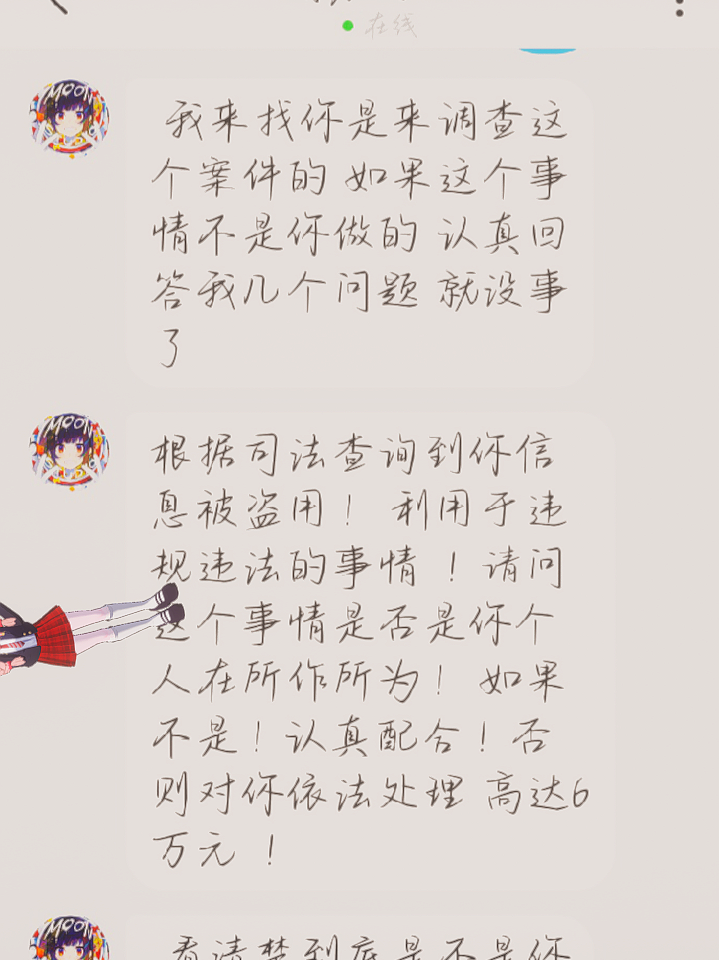 在线
MOON
我来找你是来调查这
个案件的 如果这个事
情不是你做的 认真回
答我几个问题 就没事
了
MOON
根据司法查询到你信
息被盗用！ 利用于违
规违法的事情 ！请问
这个事情是否是你个
人在所作所为！ 如果
不是！认真配合！否
则对你依法处理 高达6
万元 ！
MOON
看清楚到底是不是你